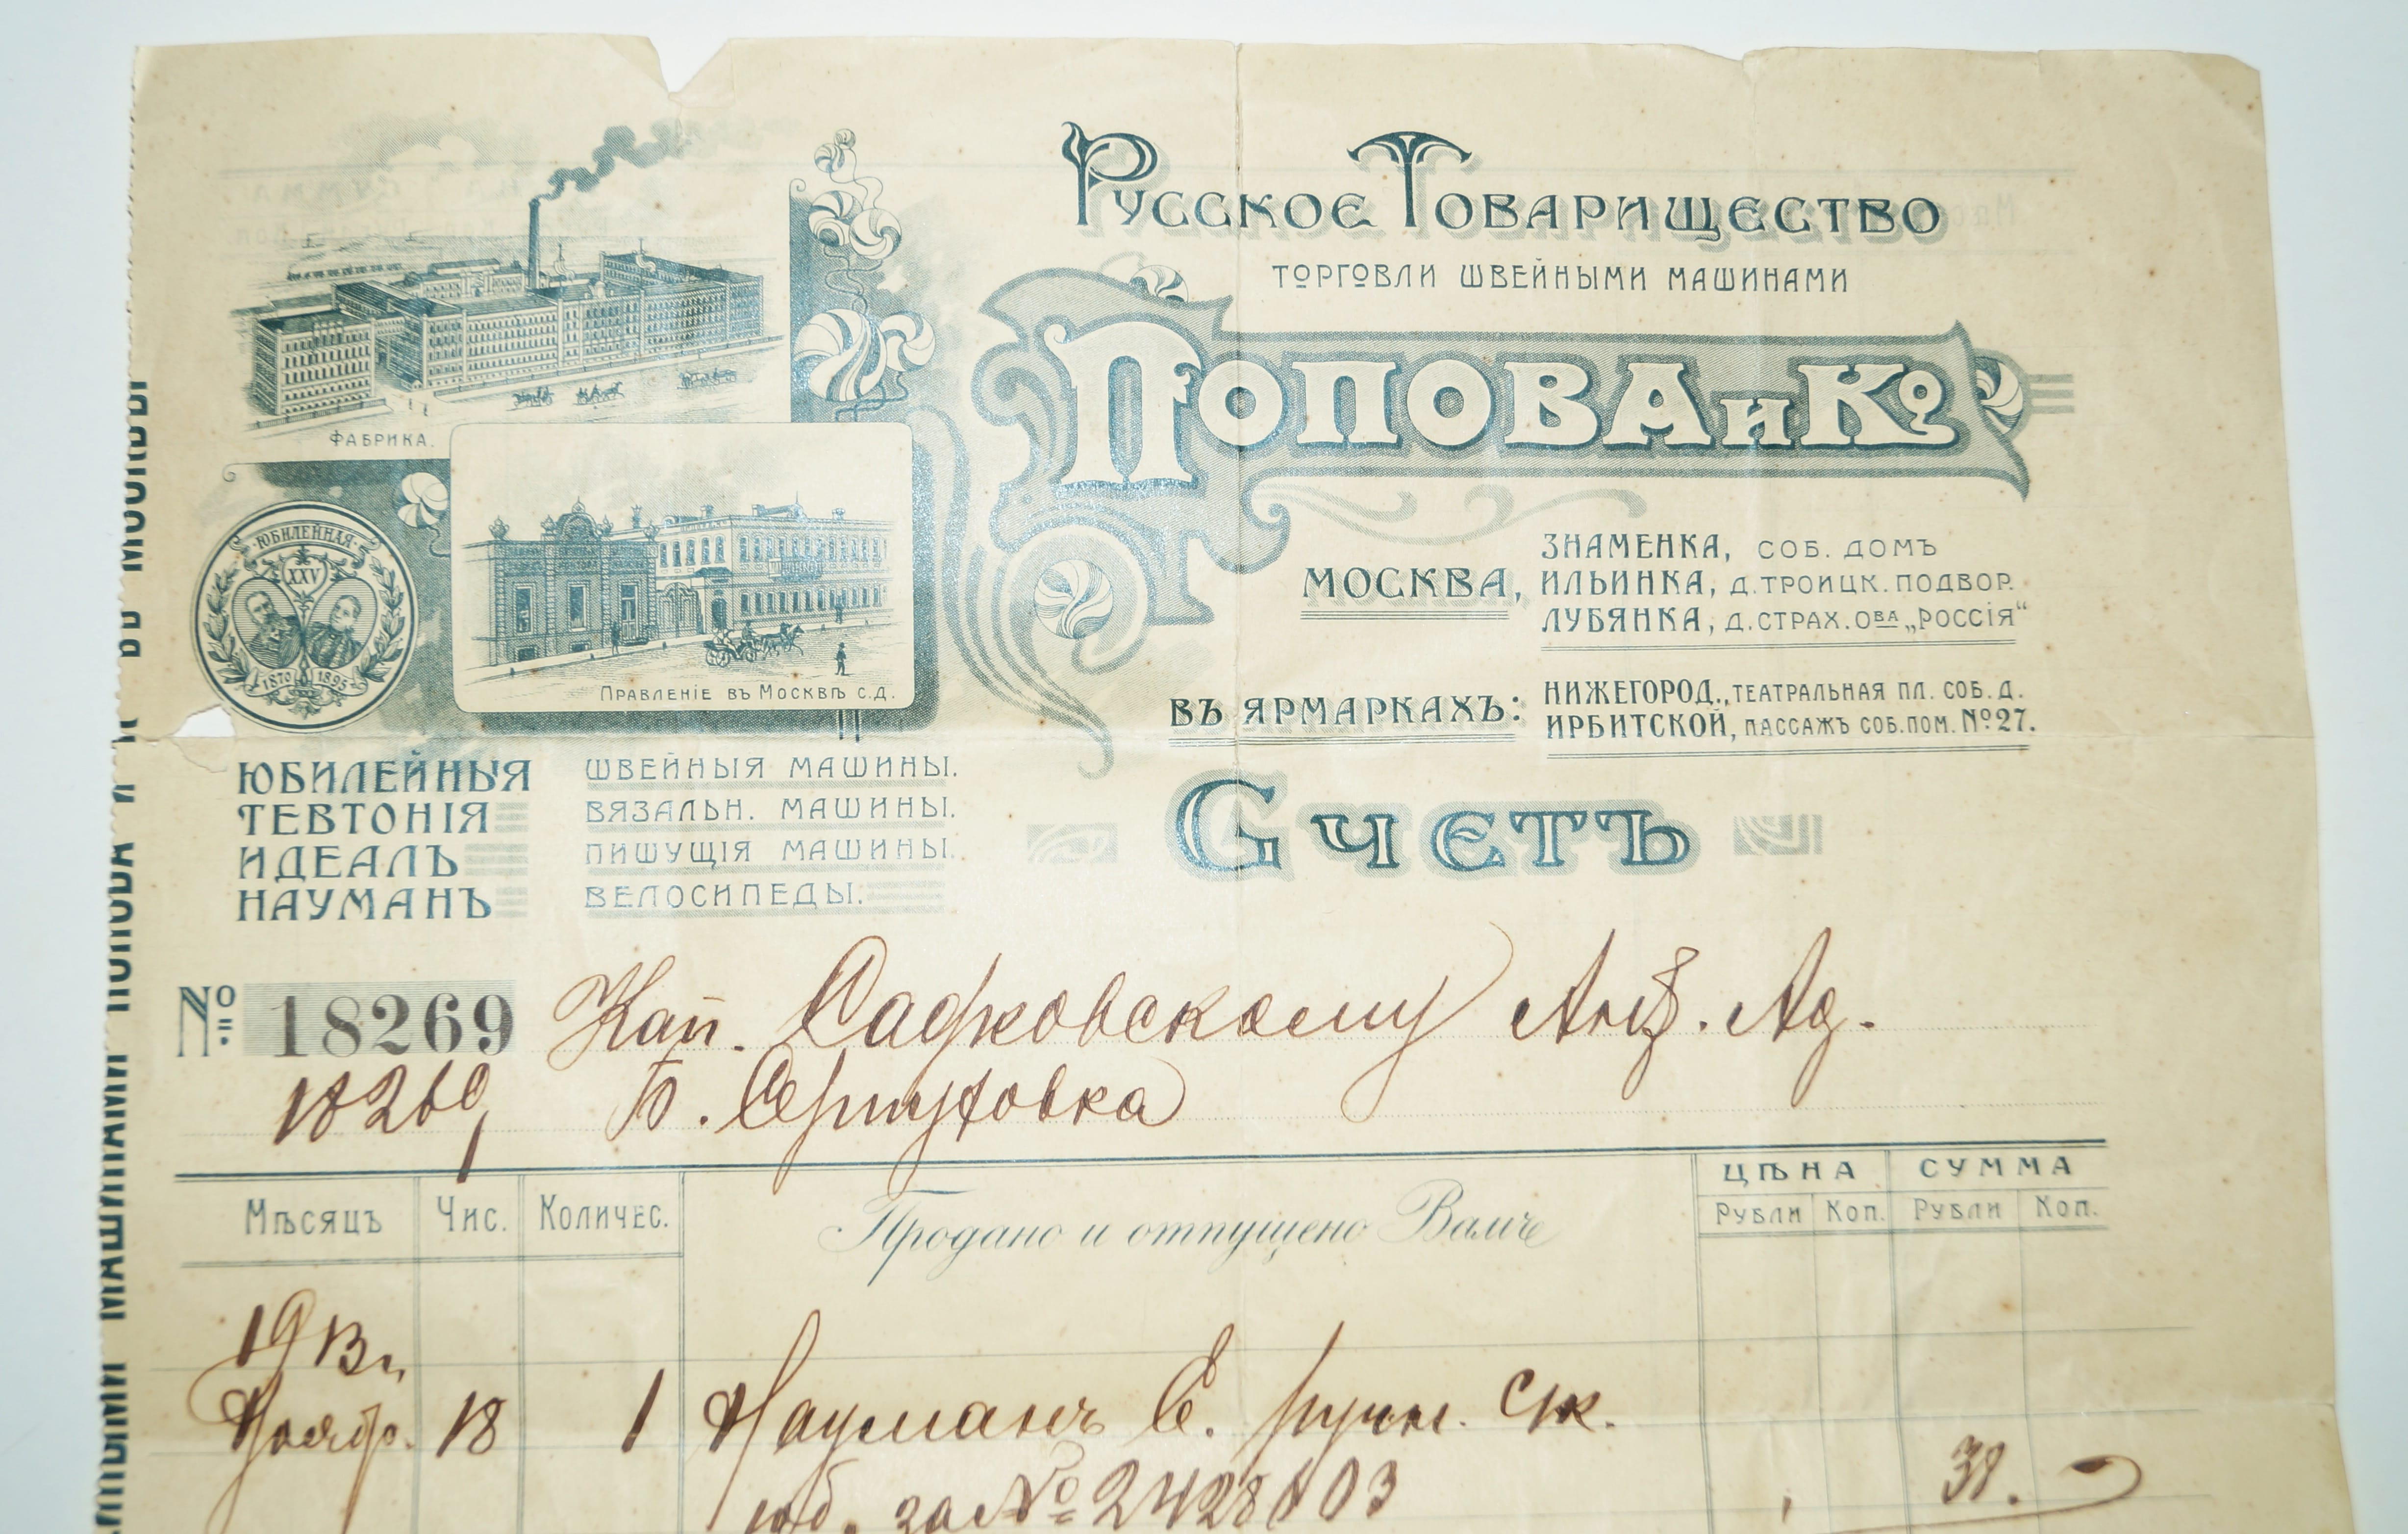 Русское Товарищество
торговли швейными машинами
Попова и Ко
Фабрика.
Юбилейная
XXV
1870 1895
Правленіе въ Москвѣ с.д.
Москва,
Знаменка, соб. домъ
Ильинка, д. Троицк. подвор.
Лубянка, д. страх. Ова „Россія“
Въ ярмаркахъ:
Нижегород., Театральная пл. соб. д.
Ирбитской, Пассажъ соб. пом. № 27.
Юбилейныя швейныя машины.
Тевтонія вязальн. машины.
Идеалъ пишущія машины.
Науманъ велосипеды.
Счетъ
№ 18269 Кап. Садковскому Ад.
18269 Б. Серпуховка
Мѣсяцъ Чис. Количес. Продано и отпущено Вамъ Цѣна Сумма
Рубли Коп. Рубли Коп.
1913 г.
Ноябр. 18 1 Науманъ С. ручн.
за № 38.
машинами Попова и Ко въ Москвѣ